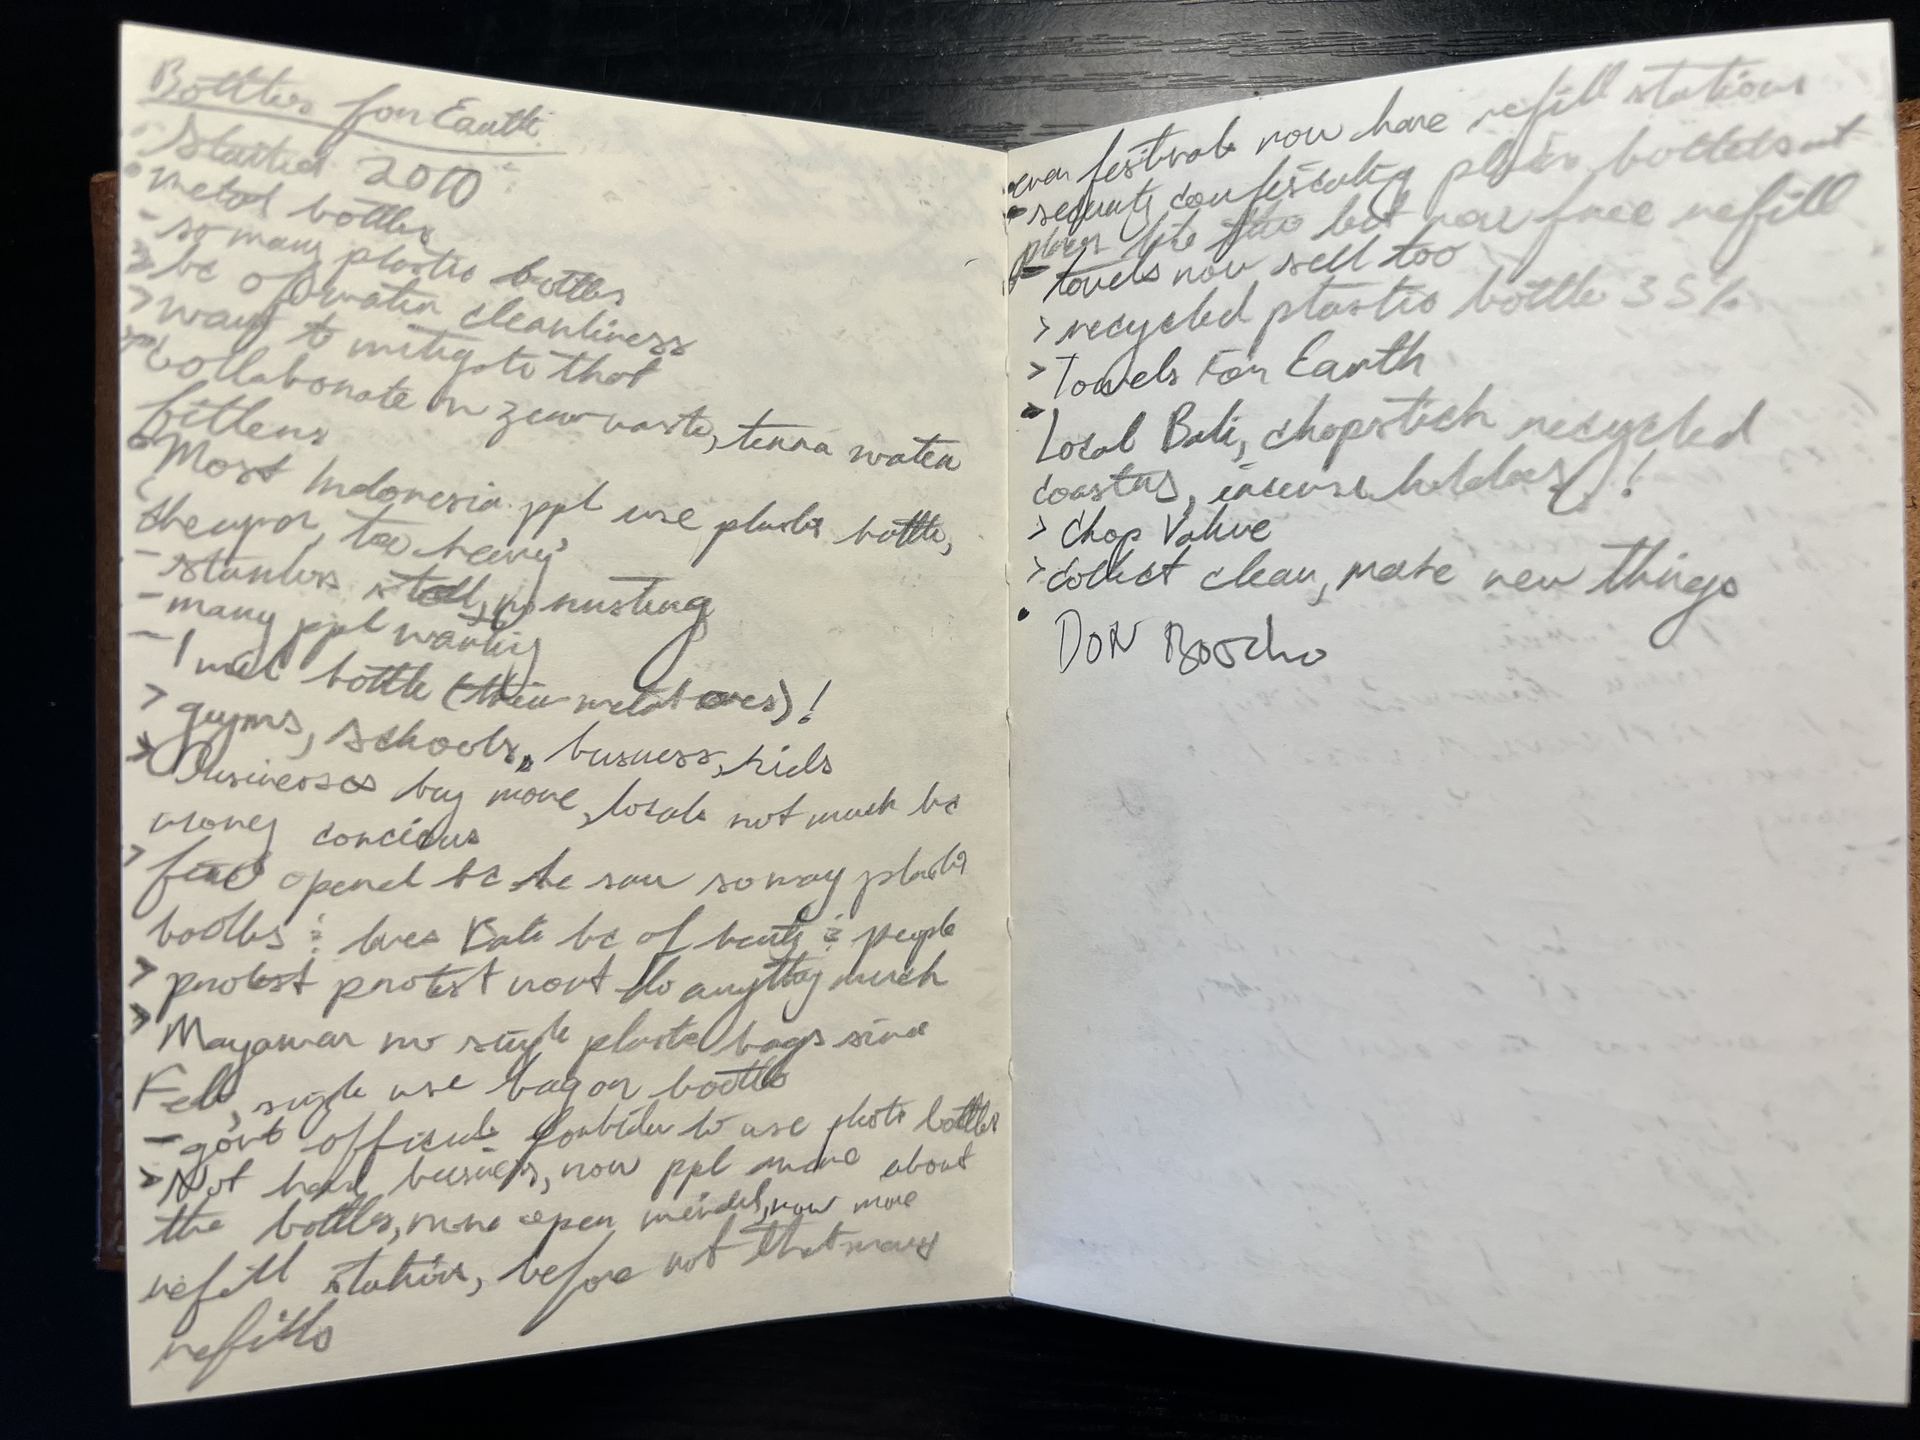 Bottles for Earth
- Started 2010
• metal bottles
- so many plastic bottles
> bc of water cleanliness
> way to mitigate that
collaborate w zero waste, terra water
filters
• Most Indonesia ppl use plastic bottle,
cheaper, too heavy
- stainless steel, no rusting
- many ppl wanting
- 1 mil bottle (their metal ones)!
> gyms, schools, business, kids
> Businesses buy more, locals not much bc
money concious
> opened bc he saw so many plastic
bottles & loves Bali bc of beauty & people
> protest protest wont do anything much
> no single plastic bags since
Feb, single use bag or bottle
- gov't officials forbiden to use plastic bottles
> Not hard business, now ppl more about
the bottles, more open minded, now more
refill stations, before not that many
refills
even festivals now have refill stations
• security confiscating plastic bottles at
places like this but now free refill
- towels now sell too
> recycled plastic bottle 35%
> Towels For Earth
• Local Bali, chopstick recycled
coasters, incense holders!
> Chop Value
> collect clean, make new things
• DON